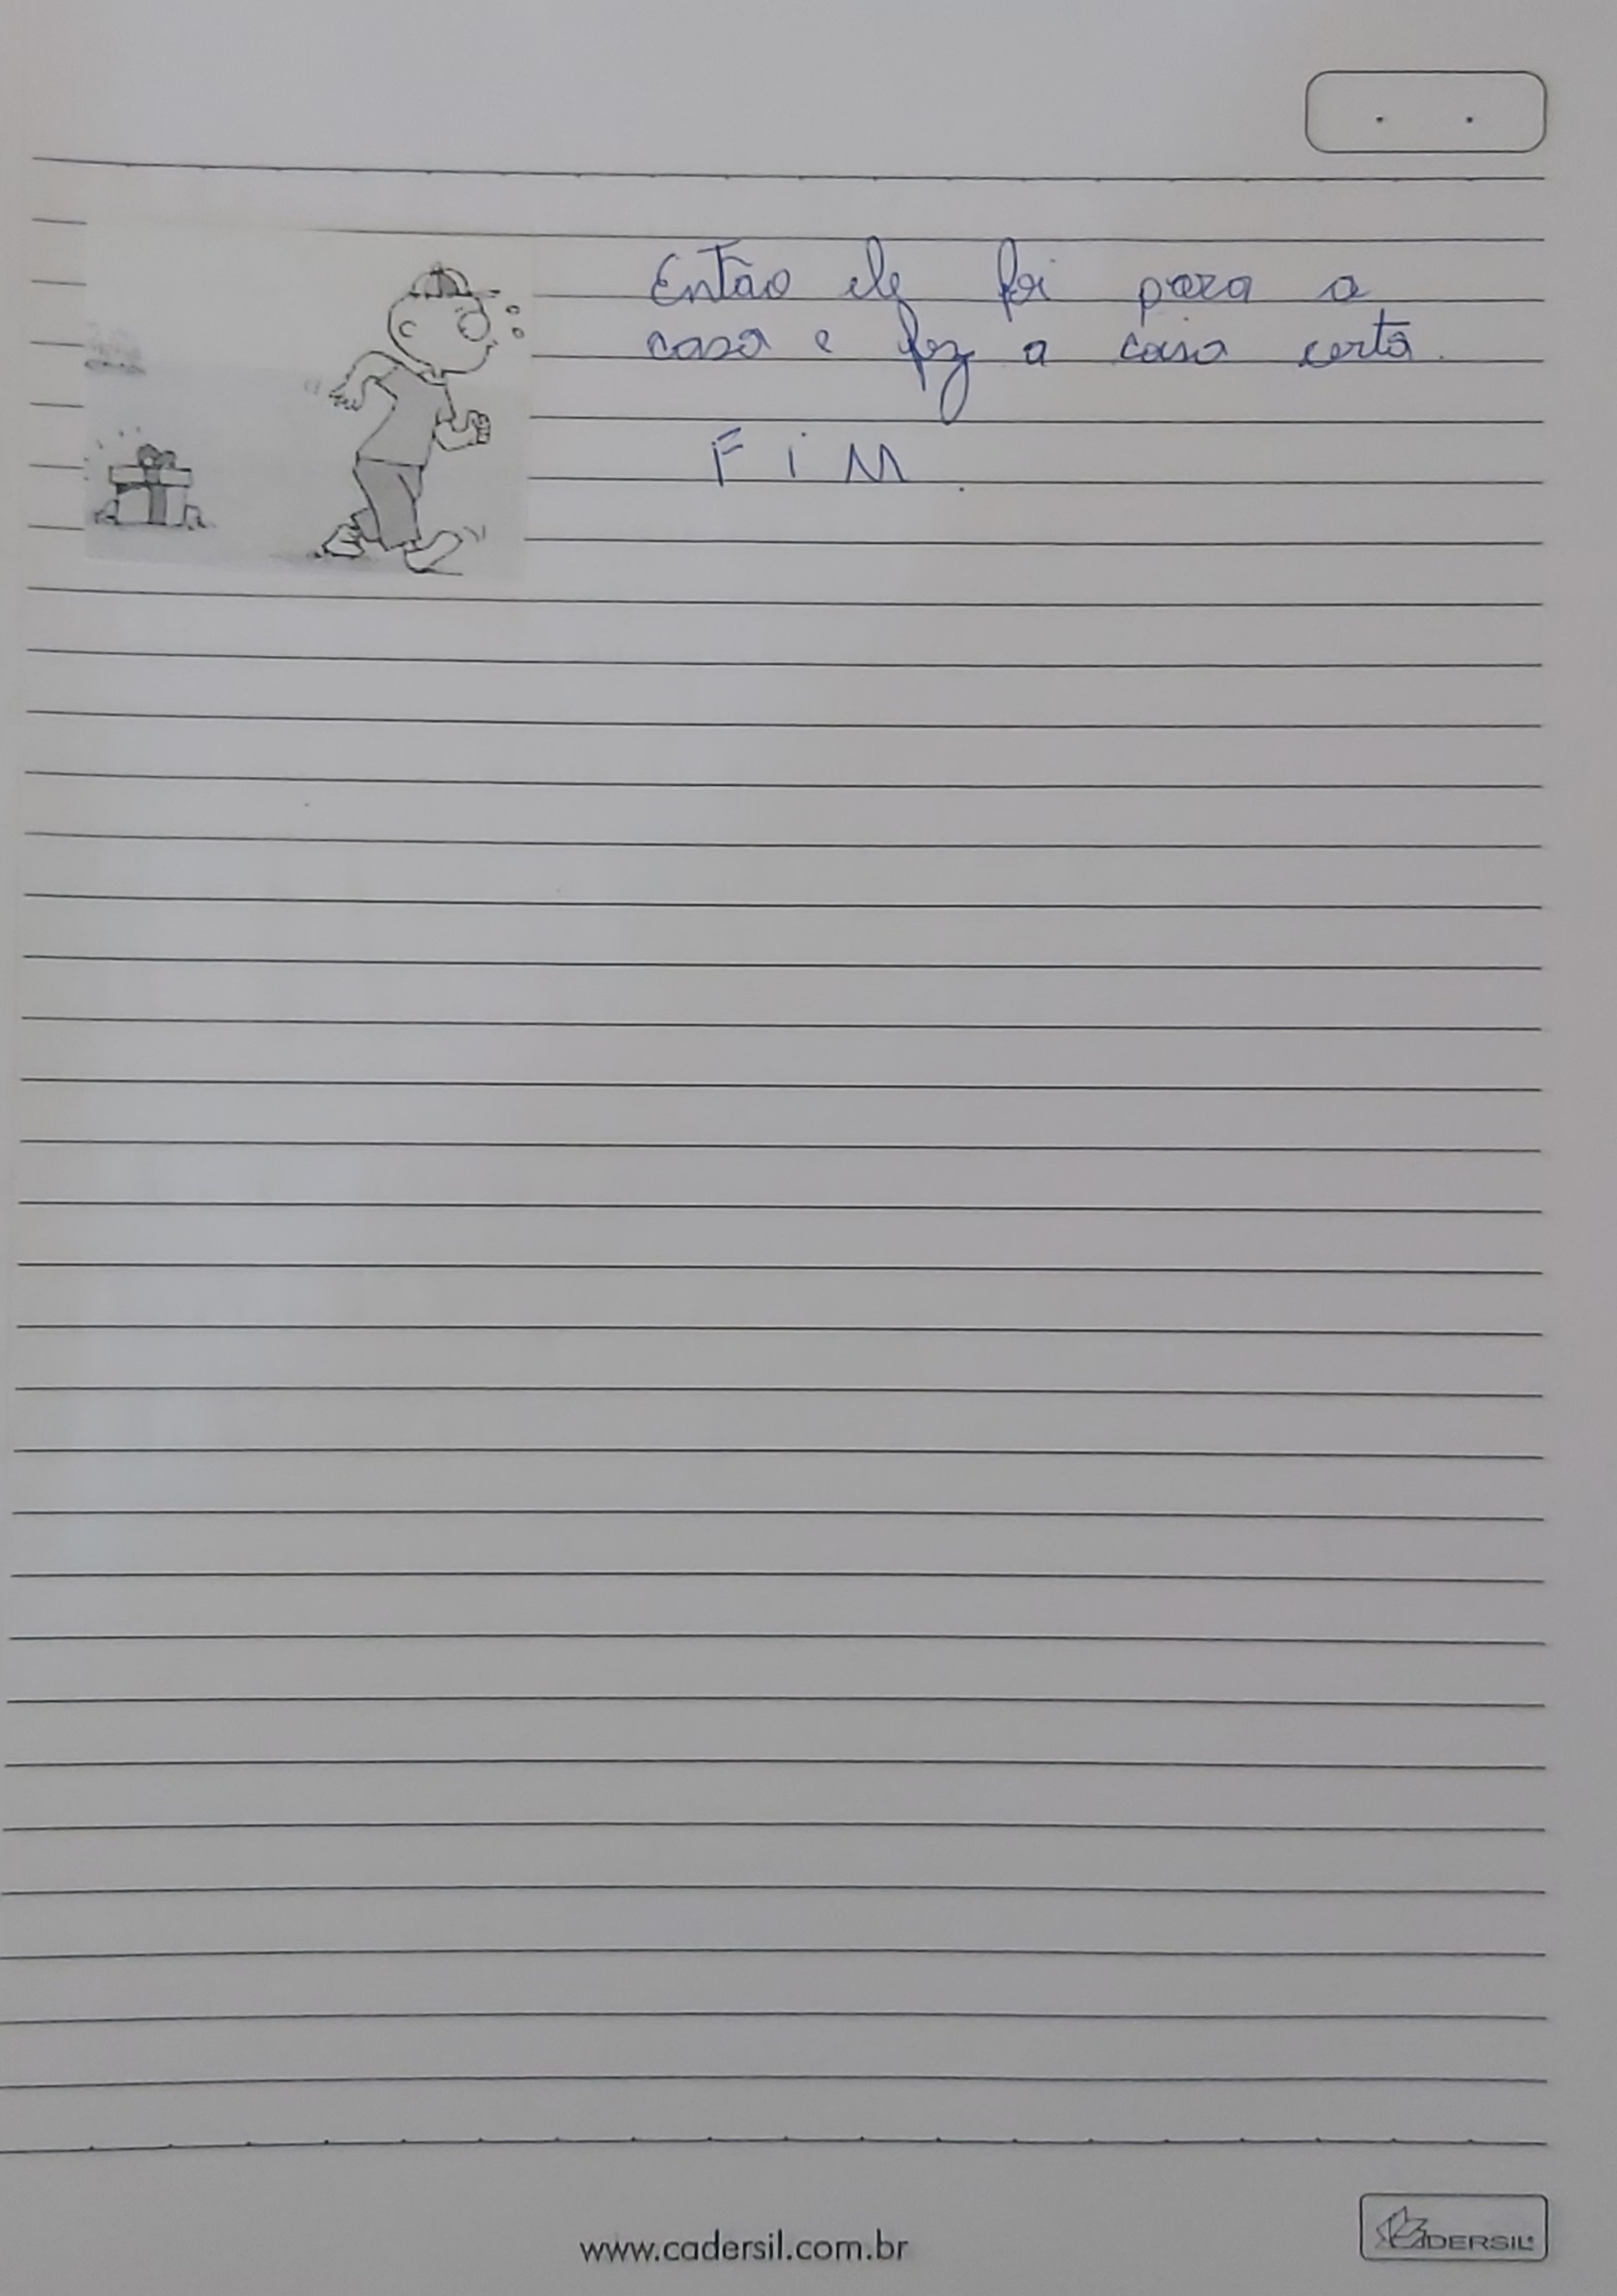 Então ele foi para a
casa e fez a coisa certa.
FiM.
www.cadersil.com.br
CADERSIL